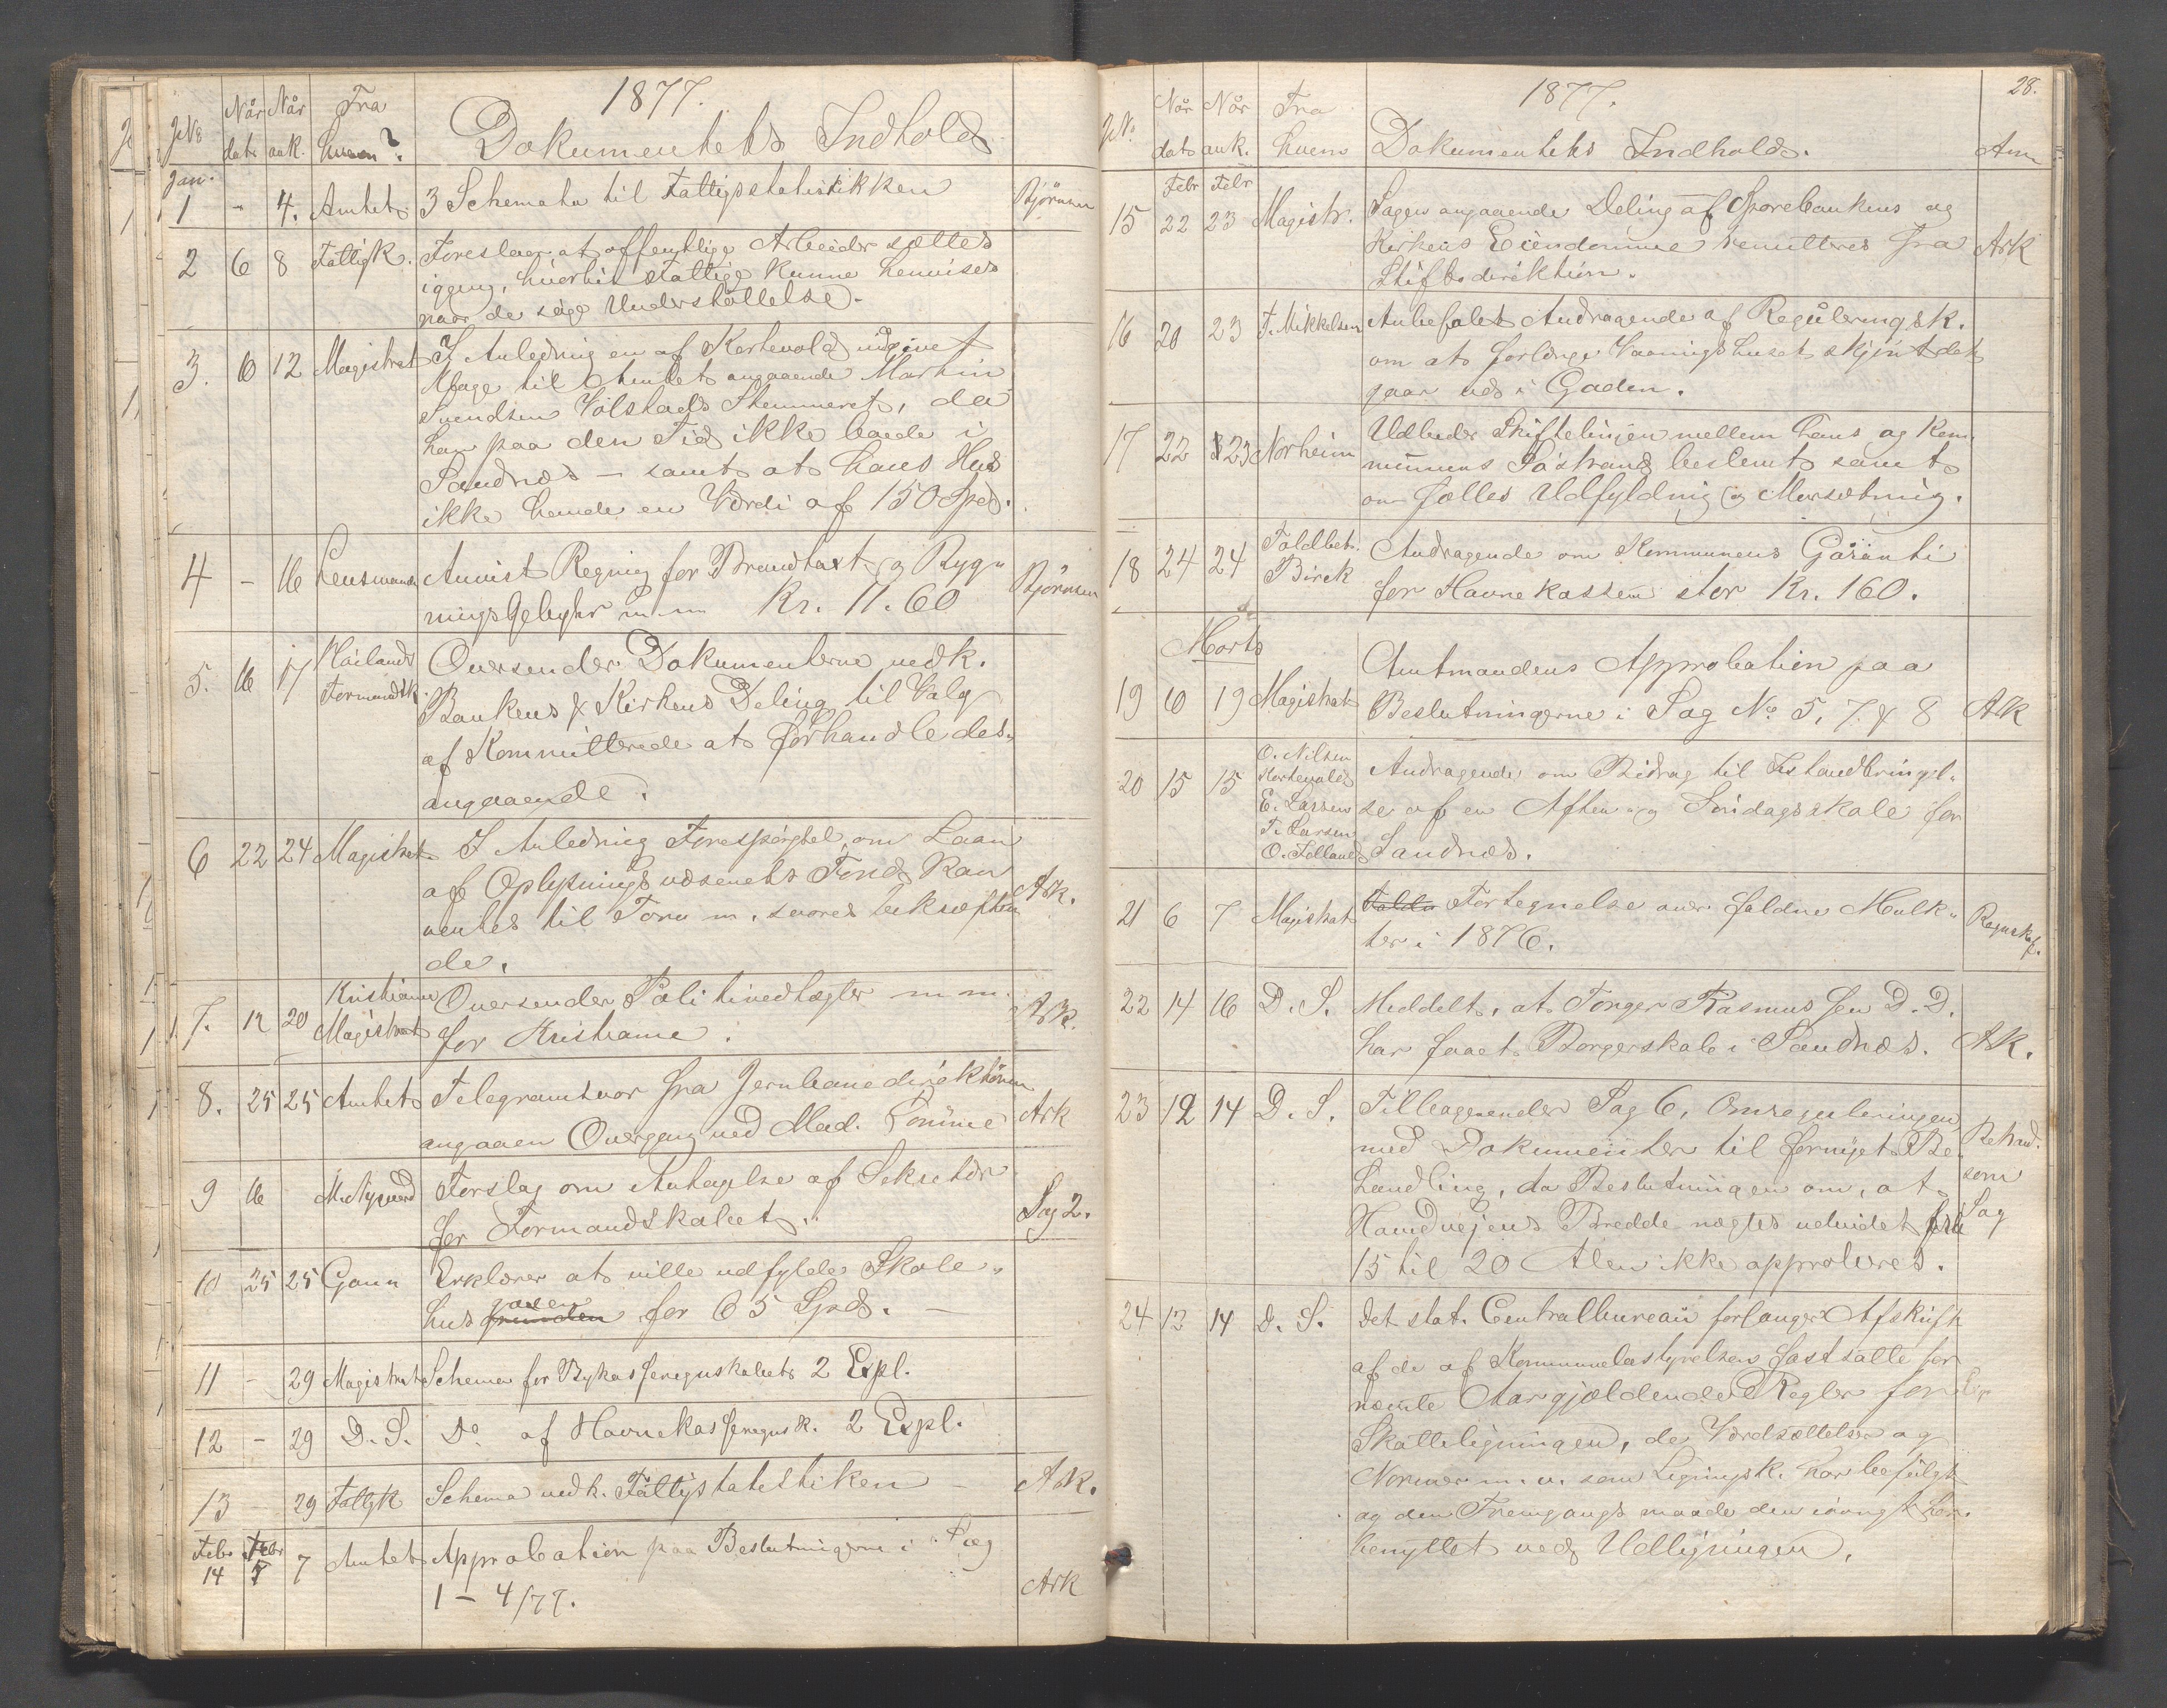 1877.
JN: Når dat. Når ank. Fra hvem? Dokumentets Indhold
Jan.
1 - 4. Amtet 3 Schemata til Fattigstatistikken Bjørnsen
2 6 8 Fattigk. Foreslaar at offentlige Arbeider sættes
igang, hvortil Fattige kunne henvises
naar de søge Understøttelse.
3. 6 12 Magistrat I Anledning en af Kartevold indgivet
Klage til Amtet angaaende Martin
Svendsen Volstads Stemmeret, da
han paa den Tid ikke boede i
Sandnæs - samt at hans Hus
ikke havde en Værdi af 150 Spd.
4 - 16 Lensmanden Anvist Regning for Brandtaxt og Byg-
ningsgebyhr m. m. Kr. 11.60 Bjørnsen
5. 16 17 Høilands Formandsk. Oversender Dokumenterne vedk.
Bankens & Kirkens Deling til Valg
af Kommitterede at forhandle des-
angaaende.
6 22 24 Magistrat I Anledning Forespørgsel, om Laan
af Oplysningsvæsenets Fond kan
ventes til Torv m. svares bekræften-
de. Ark.
7. 12 20 Kristians Magistrat Oversender Politivedtægter m. m.
for Kristians. Ark.
8. 25 25 Amtet Telegramsvar fra Jernbanedirektøren
angaaen Overgang ved Mad. Rømme Ark
9 16 M. Nygaard Forslag om Antagelse af Sekretær
for Formandskabet. Sag 2.
10 25 25 Gann Erklærer at ville udfylde Skole-
husgaven grunden for 65 Spd. -
11 - 29 Magistrat Schema for Bykasseregnskabet 2 Expl.
12 - 29 D. S. Do af Havnekasseregnsk. 2 Expl.
13 - 29 Fattigk Schema vedk. Fattigstatestiken - Ark.
Febr Febr
14 5 7 Amtet Approbation paa Beslutningerne i Sag
1 - 4/77. Ark
28.
1877.
JN. Når dat. Når ank. Fra hvem Dokumentets Indhold. Anm
Febr Febr
15 22 23 Magistr. Sagen angaaende Deling af Sparebankens og
Kirkens Eiendomme remitteres fra
Stiftsdirektion. Ark
16 20 23 T. Mikkelsen Anbefalet Andragende af Reguleringsk.
om at forlænge Vaaningshuset skjønt det
gaar ud i Gaden.
17 22 23 Norheim Udbeder Skiftelinjen mellem hans og Kom-
munens Søstrand bestemt samt
om fælles Udfyldning og Mursætning.
18 24 24 Toldbet. Birck Andragende om Kommunens Garanti
for Havnekassen stor Kr. 160.
Marts
19 10 19 Magistrat Amtmandens Approbation paa
Beslutningerne i Sag No 5, 7 & 8 Ark
20 15 15 O. Nilsen
Kartevold
E. Larsen
T. Larsen
O. Folland Andragende om Bidrag til Istandbringel-
se af en Aften og Søndagsskole for
Sandnæs.
21 6 7 Magistrat Faldn Fortegnelse over faldne Mulk-
ter i 1876. Regnskf.
22 14 16 D. S. Meddelt, at Tønger Rasmussen D. D.
har faaet Borgerskab i Sandnæs. Ark.
23 12 14 D. S. Tilbagesender Sag 6, Omreguleringen
med Dokumenter til fornyet Be-
handling, da Beslutningen om, at
Havnevejens Bredde nægtes udvidet fra
15 til 20 Alen ikke approberes. Behand. som Sag
24 13 14 D. S. Det stat. Centralbureau forlanger Afskrift
af de af Kommunebestyrelsen fastsatte for
nævnte Aar gjældende Regler for
Skatteligningen, de Værdsættelser og
Normer m. v. som Ligningsk. har befulgt
og den Fremgangsmaade den iøvrigt har
benyttet ved Udligningen.